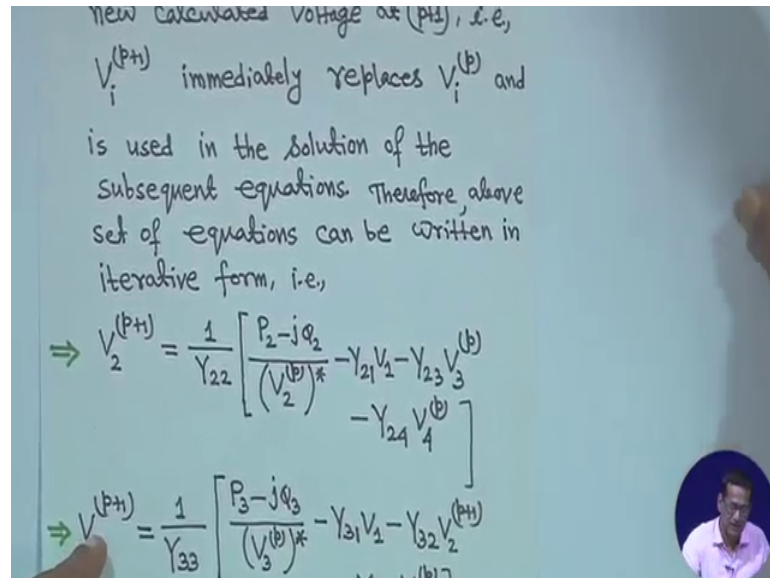 new calculated voltage at (p+1), i.e,
V_i^(p+1) immediately replaces V_i^(p) and
is used in the solution of the
subsequent equations. Therefore, above
set of equations can be written in
iterative form, i.e.,
⇒ V_2^(p+1) = 1/Y_22 [ (P_2 - jQ_2)/(V_2^(p))* - Y_21 V_1 - Y_23 V_3^(p)
- Y_24 V_4^(p) ]
⇒ V^(p+1) = 1/Y_33 [ (P_3 - jQ_3)/(V_3^(p))* - Y_31 V_1 - Y_32 V_2^(p+1)